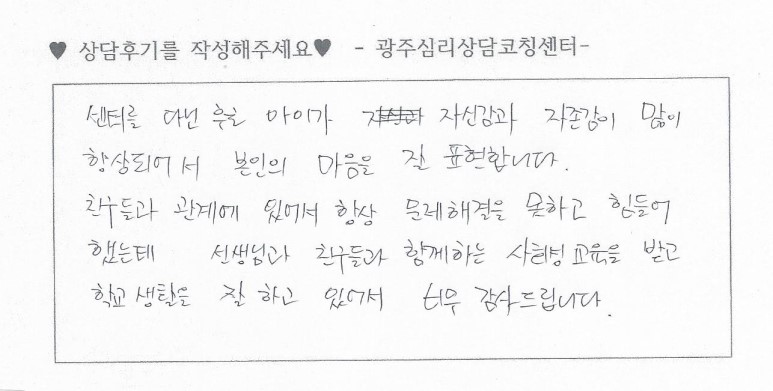 ♥ 상담후기를 작성해주세요♥ - 광주심리상담코칭센터-
센터를 다닌 후로 아이가 자신감과 자존감이 많이
향상되어서 본인의 마음을 잘 표현합니다.
친구들과 관계에 있어서 항상 문제해결을 못하고 힘들어
했는데 선생님과 친구들과 함께하는 사회성 교육을 받고
학교 생활을 잘 하고 있어서 너무 감사드립니다.